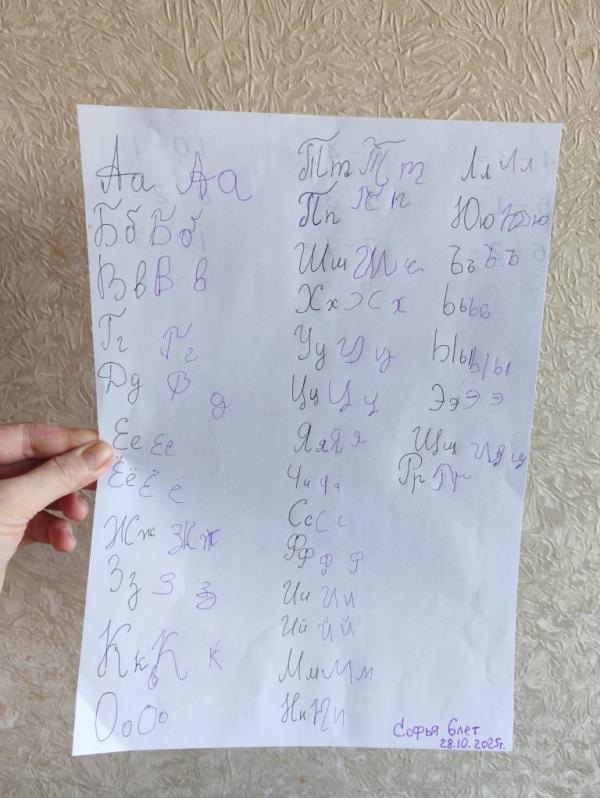 Аа Аа
Бб Бб
Вв Вв
Гг Гг
Дд Д д
Ее Ее
Ёё Ёё
Жж Жж
Зз З з
Кк К к
Оо Оо
Тт Тт
Пп Пп
Шш Ш
Хх Х х
Уу У у
Цц Ц ц
Яя Я я
Чч Чч
Сс С с
Фф ф ф
Ии И и
Ий й й
Мм М м
Нн Н н
Лл Лл
Юю Юю
Ъъ Ъ ъ
Ььь
Ыы Ыы
Ээ Э э
Щщ Щ щ
Рр Рр
Софья 6лет
28.10.2025г.